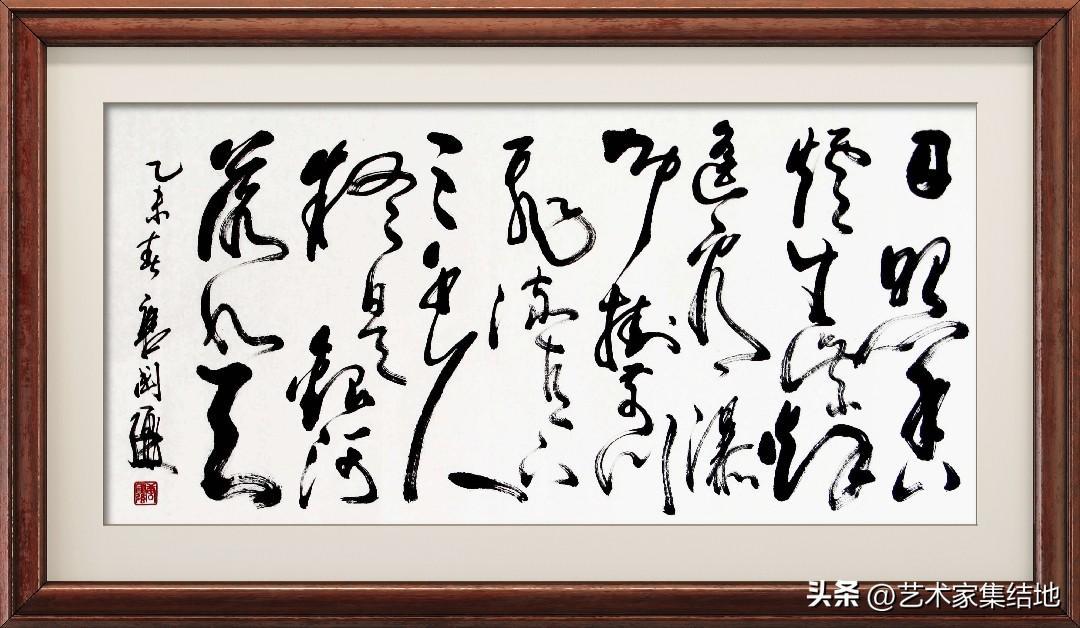 日照香
爐生紫烟
遥看瀑
布掛前川
飛流直下
三千尺
疑是銀河
落九天
乙未春
头条 @艺术家集结地